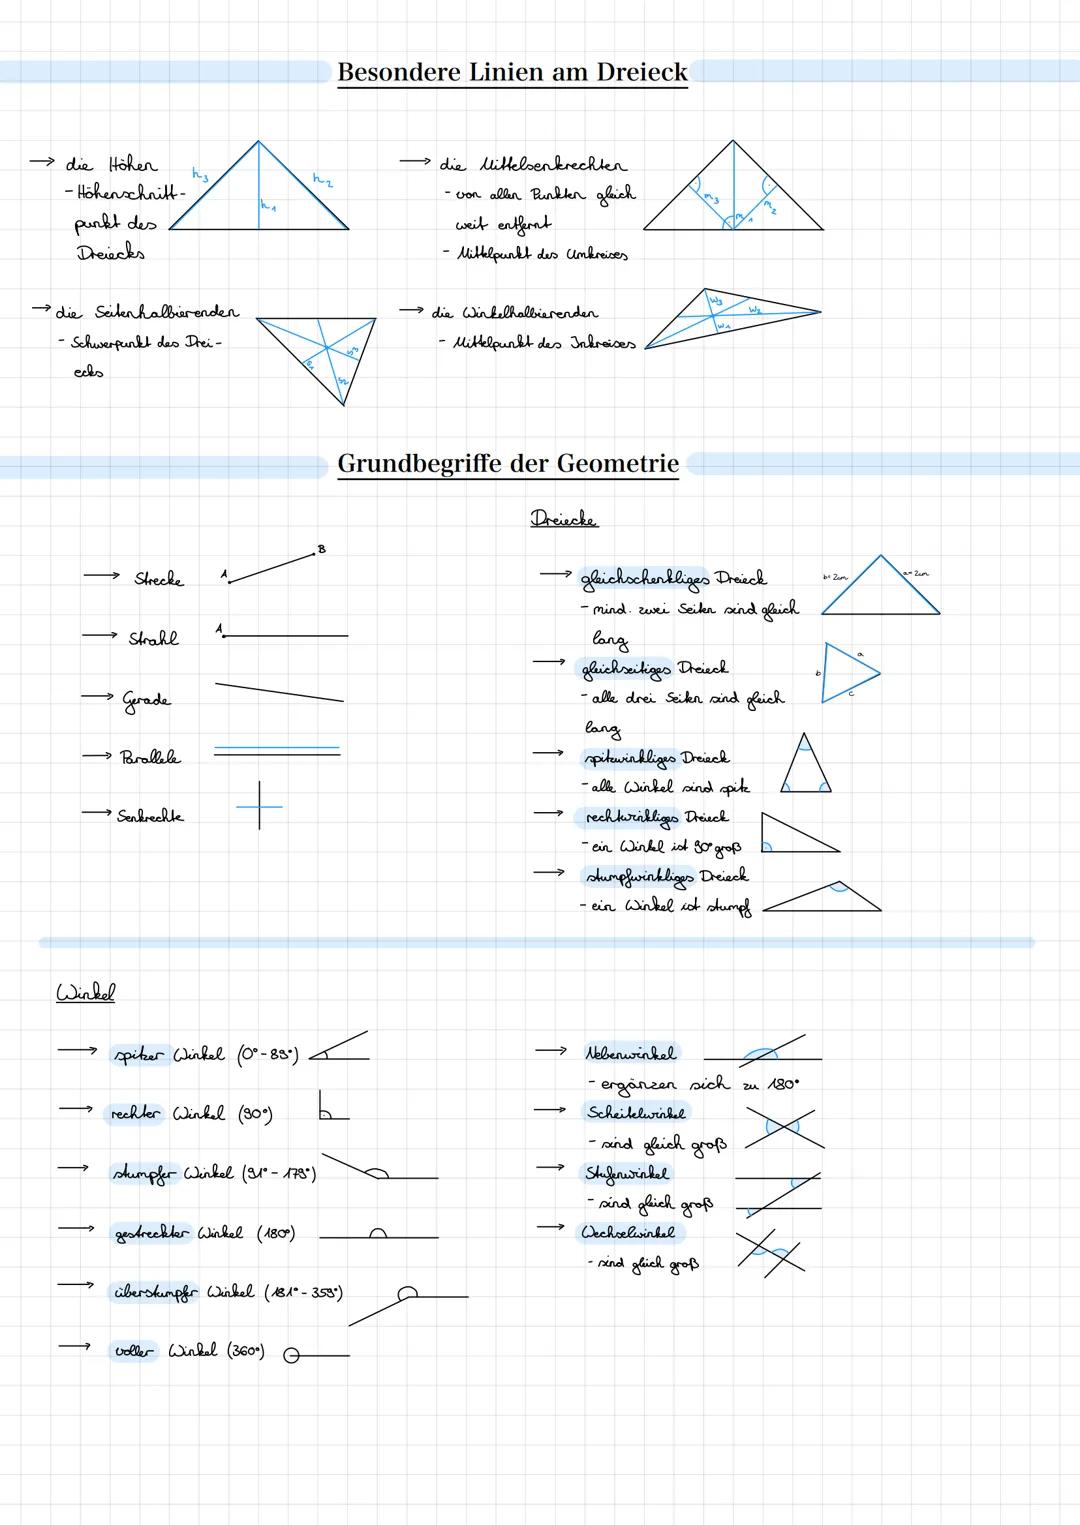 Besondere Linien am Dreieck
→ die Höhen
- Höhenschnitt-
punkt des
Dreiecks
h₃
h₂
h₁
→ die Mittelsenkrechten
- von allen Punkten gleich
weit entfernt
- Mittelpunkt des Umkreises
m₃
m₁
m₂
→ die Seitenhalbierenden
- Schwerpunkt des Drei-
ecks
s₁
s₃
s₂
→ die Winkelhalbierenden
- Mittelpunkt des Inkreises
w₃
w₂
w₁
Grundbegriffe der Geometrie
→ Strecke
A
B
→ Strahl
A
→ Gerade
→ Parallele
→ Senkrechte
Dreiecke
→ gleichschenkliges Dreieck
- mind. zwei Seiten sind gleich
lang
b= 2cm
a= 2cm
→ gleichseitiges Dreieck
- alle drei Seiten sind gleich
lang
a
b
c
→ spitzwinkliges Dreieck
- alle Winkel sind spitz
→ rechtwinkliges Dreieck
- ein Winkel ist 90° groß
→ stumpfwinkliges Dreieck
- ein Winkel ist stumpf
Winkel
→ spitzer Winkel (0°-89°)
→ rechter Winkel (90°)
→ stumpfer Winkel (91° - 179°)
→ gestreckter Winkel (180°)
→ überstumpfer Winkel (181° - 359°)
→ voller Winkel (360°)
→ Nebenwinkel
- ergänzen sich zu 180°
→ Scheitelwinkel
- sind gleich groß
→ Stufenwinkel
- sind gleich groß
→ Wechselwinkel
- sind gleich groß